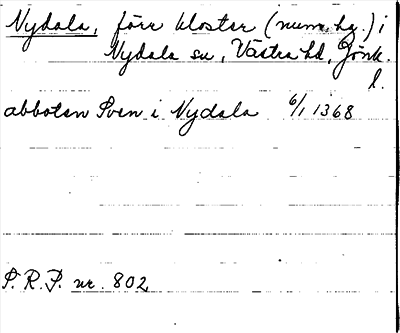 Nydala, förr kloster (num. hg.) i
Nydala sn, Västra hd, Jönk.
l.
abboten Sven i Nydala 6/1 1368
S.R.P. nr. 802